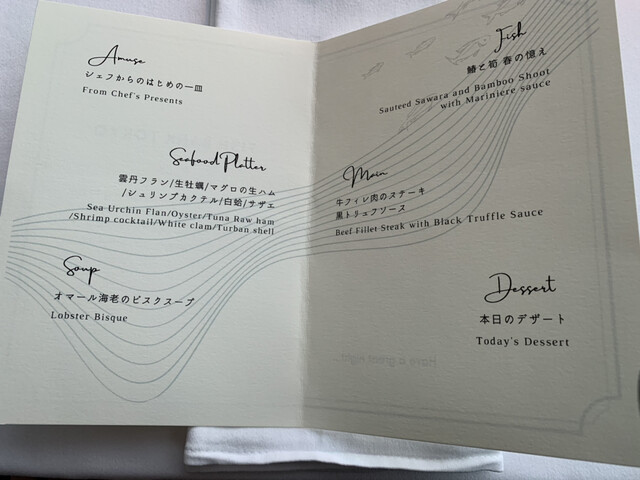 Amuse
シェフからのはじめの一皿
From Chef's Presents
Seafood Platter
雲丹フラン/生牡蠣/マグロの生ハム
/シュリンプカクテル/白蛤/サザエ
Sea Urchin Flan/Oyster/Tuna Raw ham
/Shrimp cocktail/White clam/Turban shell
Soup
オマール海老のビスクスープ
Lobster Bisque
Fish
鰆と筍 春の憶え
Sauteed Sawara and Bamboo Shoot
with Mariniere sauce
Main
牛フィレ肉のステーキ
黒トリュフソース
Beef Fillet Steak with Black Truffle Sauce
Dessert
本日のデザート
Today's Dessert